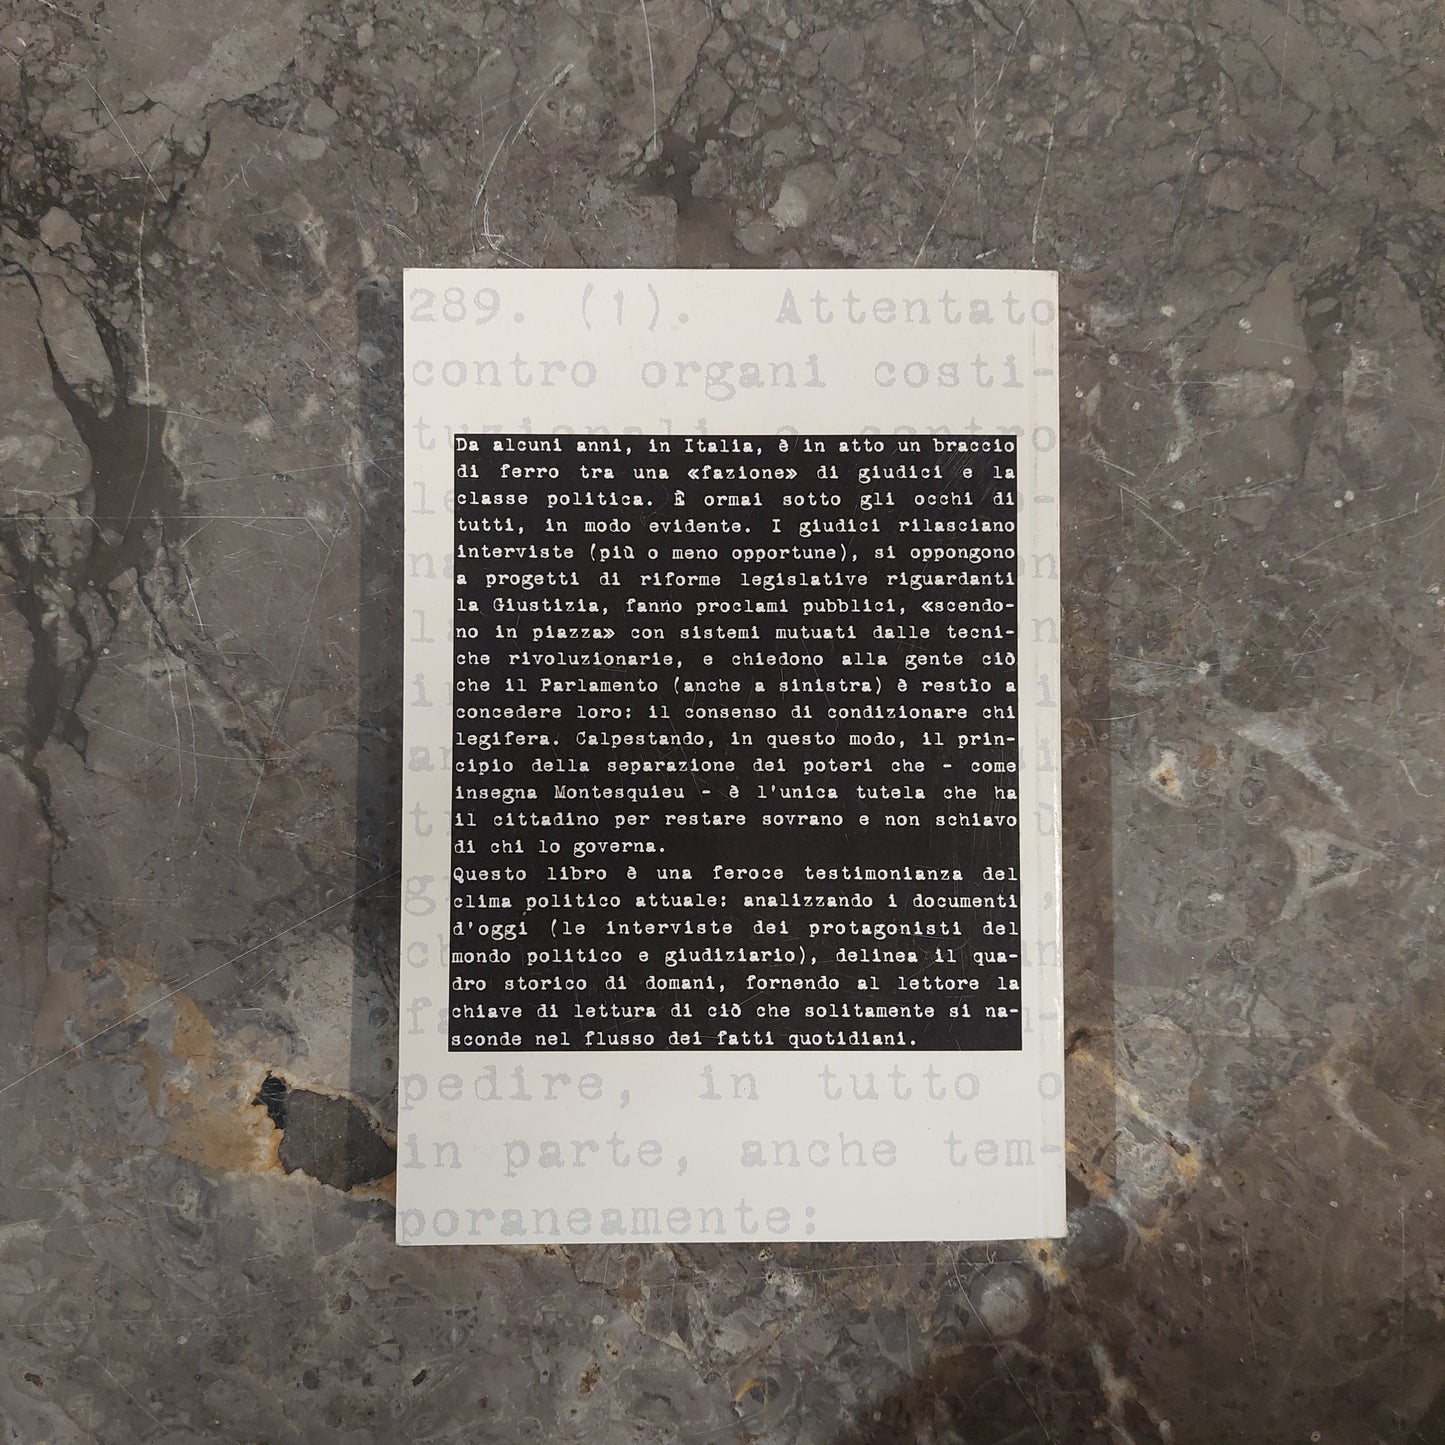 289. (1). Attentato
contro organi costi-
tuzionali e contro
Da alcuni anni, in Italia, è in atto un braccio
di ferro tra una «fazione» di giudici e la
classe politica. È ormai sotto gli occhi di
tutti, in modo evidente. I giudici rilasciano
interviste (più o meno opportune), si oppongono
a progetti di riforme legislative riguardanti
la Giustizia, fanno proclami pubblici, «scendo-
no in piazza» con sistemi mutuati dalle tecni-
che rivoluzionarie, e chiedono alla gente ciò
che il Parlamento (anche a sinistra) è restìo a
concedere loro: il consenso di condizionare chi
legifera. Calpestando, in questo modo, il prin-
cipio della separazione dei poteri che - come
insegna Montesquieu - è l'unica tutela che ha
il cittadino per restare sovrano e non schiavo
di chi lo governa.
Questo libro è una feroce testimonianza del
clima politico attuale: analizzando i documenti
d'oggi (le interviste dei protagonisti del
mondo politico e giudiziario), delinea il qua-
dro storico di domani, fornendo al lettore la
chiave di lettura di ciò che solitamente si na-
sconde nel flusso dei fatti quotidiani.
pedire, in tutto o
in parte, anche tem-
poraneamente: